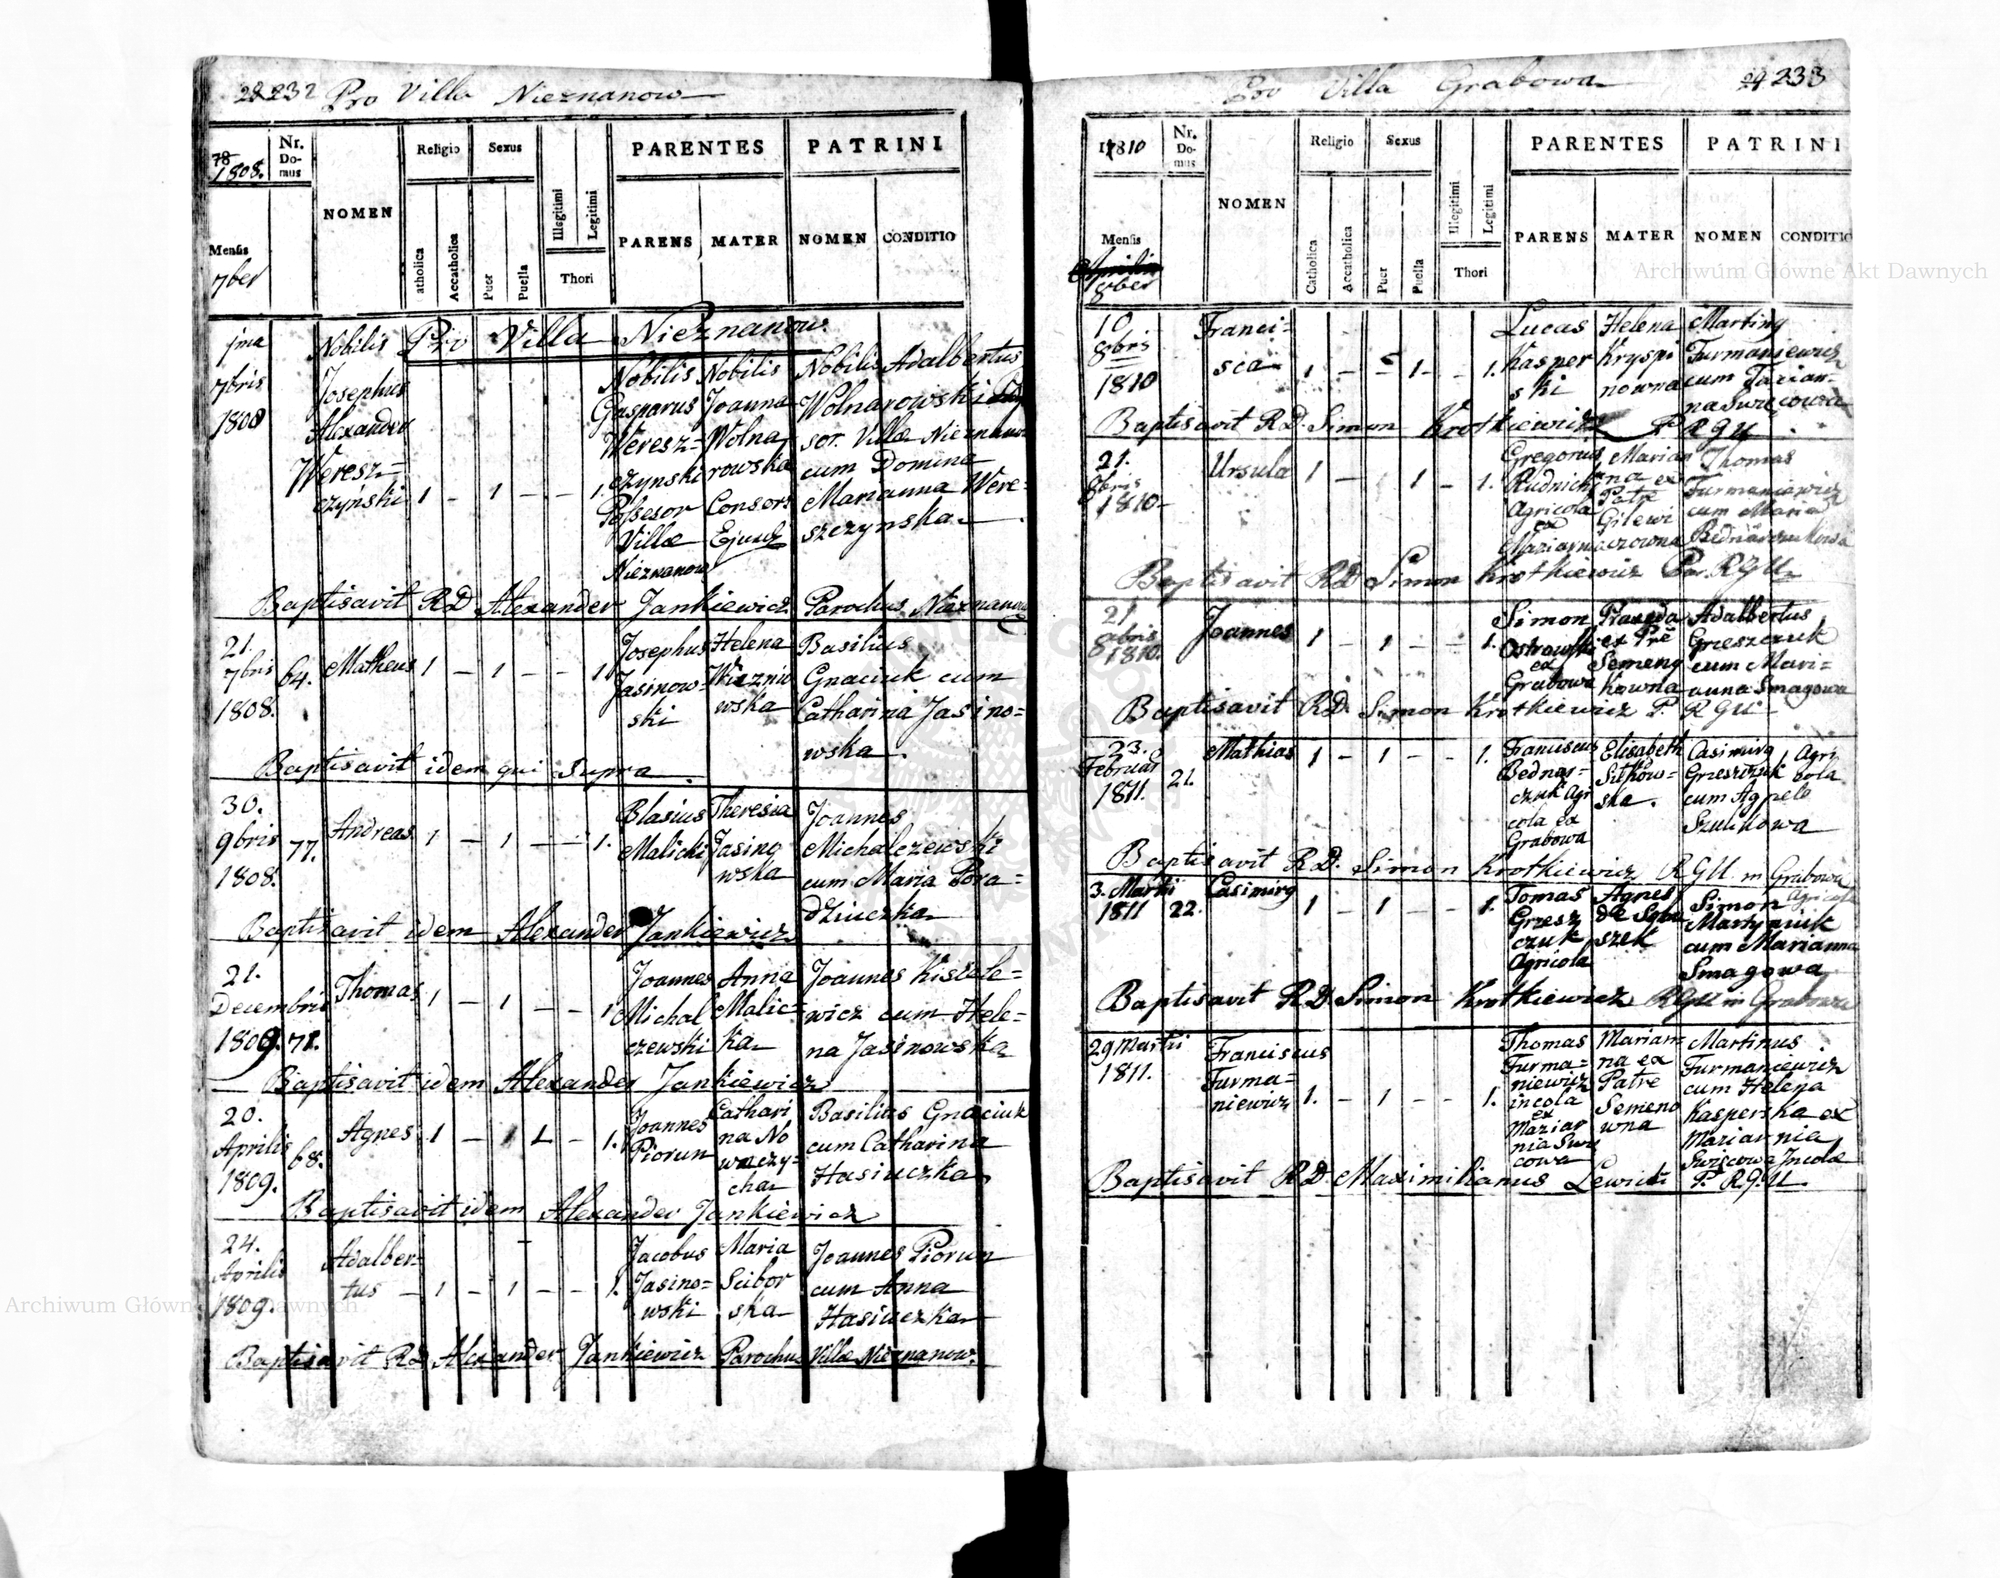 28 232 Pro Villa Nieznanow
78
1808.
Nr. Domus
NOMEN
Religio
Sexus
PARENTES
PATRINI
Mensis
7ber
atholica
Accatholica
Puer
Puella
Illegitimi
Legitimi
Thori
PARENS
MATER
NOMEN
CONDITIO
Pro Villa Nieznanow
1ma 7bris 1808
Nobilis Josephus Alexander Weresz= czyński
1 - 1 - - 1.
Nobilis Gasparus Weresz= czynski Possesor Villæ Nieznanow
Nobilis Joanna Wolna rowska Consors Ejusd
Nobilis Adalbertus
Wolnarowski
sor. Villæ Nieznano
cum Domina
Marianna Were=
szczynska
Baptisavit RD Alexander Jankiewicz Parochus Nieznanow
21. 7bris 1808. 64. Matheus 1 - 1 - - 1
Josephus Jasinow= ski
Helena Wiezniowska
Basilius
Gnaciuk cum
Catharina Jasino=
wska
Baptisavit idem qui supra
30. 9bris 1808. 77. Andreas 1 - 1 - - 1.
Blasius Malicki
Theresia Jasino wska
Joannes
Michalczewski
cum Maria Pora=
dziuczka
Baptisavit idem Alexander Jankiewicz
21. Decembris 1809. 78. Thomas 1 - 1 - - 1
Joannes Michal czewski
Anna Malic= ka
Joannes Kisiele=
wicz cum Hele=
na Jasinowska
Baptisavit idem Alexander Jankiewicz
20. Aprilis 1809. 68. Agnes 1 - 1 - 1.
Joannes Piorun
Cathari na No waczy= cha
Basilius Gnaciuk
cum Catharina
Hasiuczka
Baptisavit idem Alexander Jankiewicz
24. Avrilis 1809. Adalber= tus - 1 - 1 - - 1.
Jacobus Jasino= wski
Maria Scibor ska
Joannes Piorun
cum Anna
Hasiuczka
Baptisavit RD Alexander Jankiewicz Parochus Villæ Nieznanow.
Pro Villa Grabowa 29 233
1810
Nr. Domus
NOMEN
Religio
Sexus
PARENTES
PATRINI
Mensis
8ber
Catholica
Accatholica
Puer
Puella
Illegitimi
Legitimi
Thori
PARENS
MATER
NOMEN
CONDITIO
10 8bris 1810 Franci= sca 1 - - 1 - 1.
Lucas Kasper ski
Helena Kryspi nowna
Marting
Furmaniewicz
cum Tarian=
na Swiecowa
Baptisavit RD. Simon Krotkiewicz P. RGU
21. 8bris 1810 Ursula 1 - 1 - 1.
Gregorius Rudnicki Agricola ex
Marian na ex Patre Gilewi czowna
Thomas
Furmaniewicz
cum Maria
Bednarczukowa
Baptisavit RD Simon Krotkiewicz Par. RGU
21 8bris 1810. Joannes 1 - 1 - - 1.
Simon Ostrowski ex Grabowa
Praxeda ex Pre Semeng kowna
Adalbertus
Grieszczuk
cum Mari=
anna Smagowa
Baptisavit RD. Simon Krotkiewicz P. RGU
23. Februar 1811. 21. Mathias 1 - 1 - - 1.
Franciscus Bednar= czuk Agri cola ex Grabowa
Elisabeth Sitkow= ska.
Casimirg Agri
Grieszczuk cola
cum Agnele
Szulikowa
Baptisavit RD. Simon Krotkiewicz RGU in Grabowa
3. Martii 1811 22. Casimirg 1 - 1 - - 1.
Tomas Grzesz czuk Agricola
Agnes
Simon Agricola
Martyniuk
cum Marianna
Smagowa
Baptisavit RD Simon Krotkiewicz RGU in Grabowa
29 Martii 1811. Franciscus Furma= niewicz 1. - 1 - - 1.
Thomas Furma= niewicz incola ex
Marian na ex Patre Semeno wna
Martinus
Furmaniewicz
cum Helena
Kasperska ex
Mariarnia
Swięcowa Incolæ
Baptisavit RD Maximilianus Lewicki P. RGU.
Archiwum Główne Akt Dawnych
Archiwum Główne Akt Dawnych